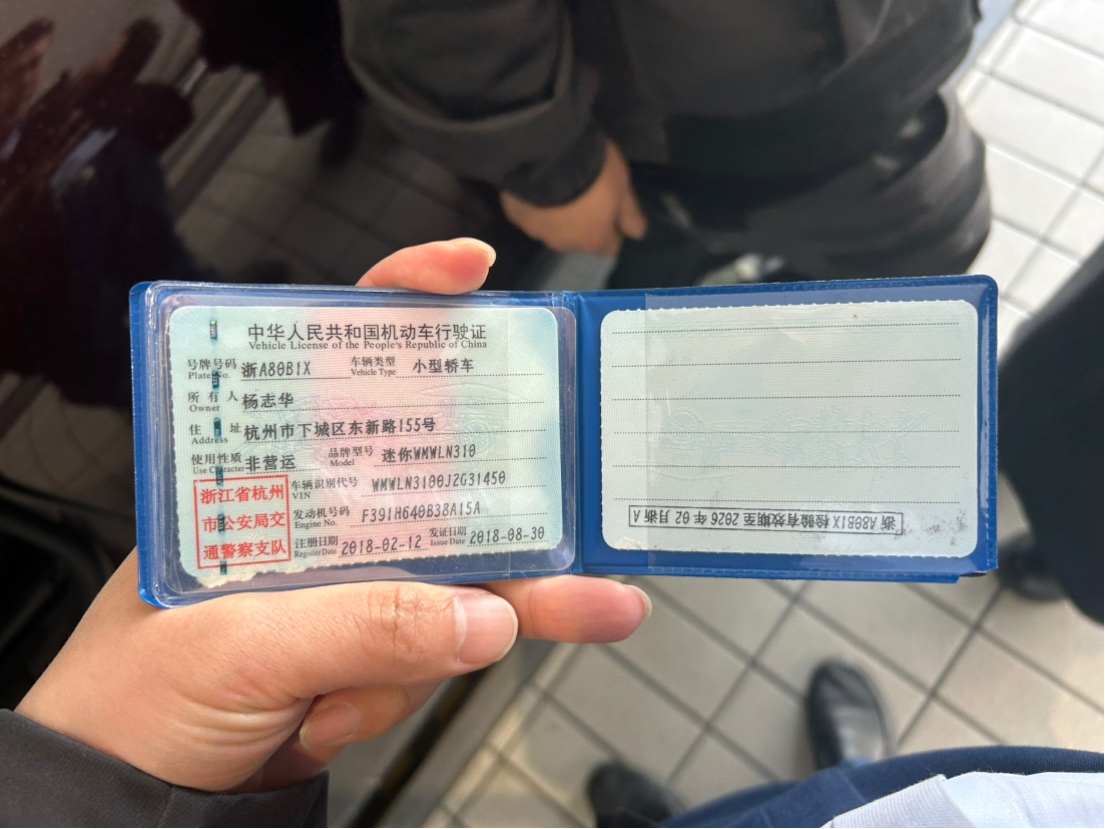 中华人民共和国机动车行驶证
Vehicle License of the People's Republic of China
号牌号码 浙A80B1X 车辆类型 小型轿车
Plate No. Vehicle Type
所有人 杨志华
Owner
住址 杭州市下城区东新路155号
Address
使用性质 非营运 品牌型号 迷你WMWLN310
Use Character Model
车辆识别代号 WMWLN3100J2G31450
VIN
发动机号码 F391H640B38A15A
Engine No.
注册日期 2018-02-12 发证日期 2018-08-30
Register Date Issue Date
浙江省杭州
市公安局交
通警察支队
浙A80B1X检验有效期至2026年02月浙A